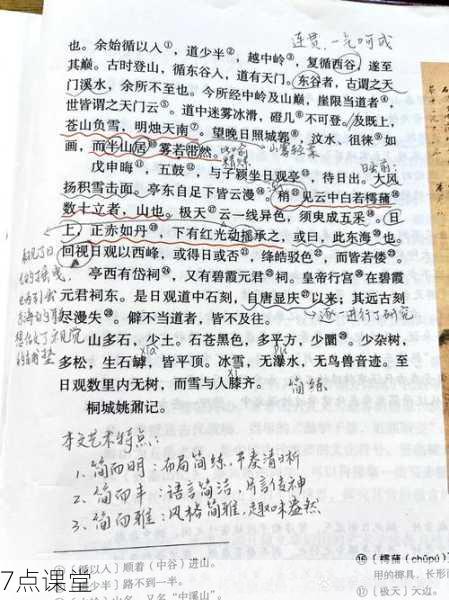 连贯,一气呵成
也。余始循以入①,道少半②,越中岭③,复循西谷,遂至
其巅。古时登山,循东谷入,道有天门。东谷者,古谓之天
门溪水,余所不至也。今所经中岭及山巅,崖限当道者④,
世皆谓之天门云⑤。道中迷雾冰滑,磴几⑥不可登。及既上,
苍山负雪,明烛天南⑦。望晚日照城郭⑧,汶水、徂徕⑨如
画,而半山居⑩雾若带然。
戊申晦⑪,五鼓⑫,与子颍坐日观亭⑬,待日出。大风
扬积雪击面。亭东自足下皆云漫⑭。稍⑮见云中白若樗蒱⑯
数十立者,山也。极天⑰云一线异色,须臾成五采⑱。日
上,正赤如丹⑲,下有红光动摇承之,或曰,此东海⑳也。
回视日观以西峰,或得日或否,绛皓驳色,而皆若偻。
亭西有岱祠,又有碧霞元君祠。皇帝行宫在碧霞
元君祠东。是日观道中石刻,自唐显庆以来;其远古刻
尽漫失。僻不当道者,皆不及往。
逐一进行了研究
山多石,少土。石苍黑色,多平方,少圜。少杂树,
多松,生石罅,皆平顶。冰雪,无瀑水,无鸟兽音迹。至
日观数里内无树,而雪与人膝齐。
简练
桐城姚鼐记。
本文艺术特点:
1、简而明:布局简练,节奏清晰
2、简而丰:语言简洁,月言传神
3、简而雅:风格简雅,趣味盎然
〔循以入〕顺着(中谷)进山。
少半〕路不到一半。
⑯〔樗蒱(chūpú)〕
用的棋具,长形
⑰〔极天〕天边。
7点课堂